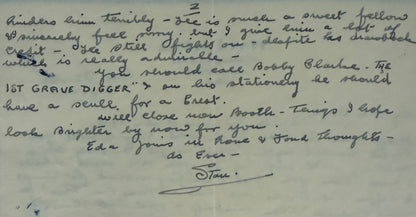 2
hinders him terribly - Lee is such a sweet fellow
& sincerely feel sorry; but I give him a lot of
Credit - Lee still fights on - despite his drawback
which is really admirable -
you should call Bobby Clarke - THE
1ST GRAVE DIGGER" & on his stationery he should
have a scull for a Crest.
will close now Booth - Tings I hope
look Brighter by now for you.
Eda joins in Love & Fond Thoughts -
as Ever -
Stan.